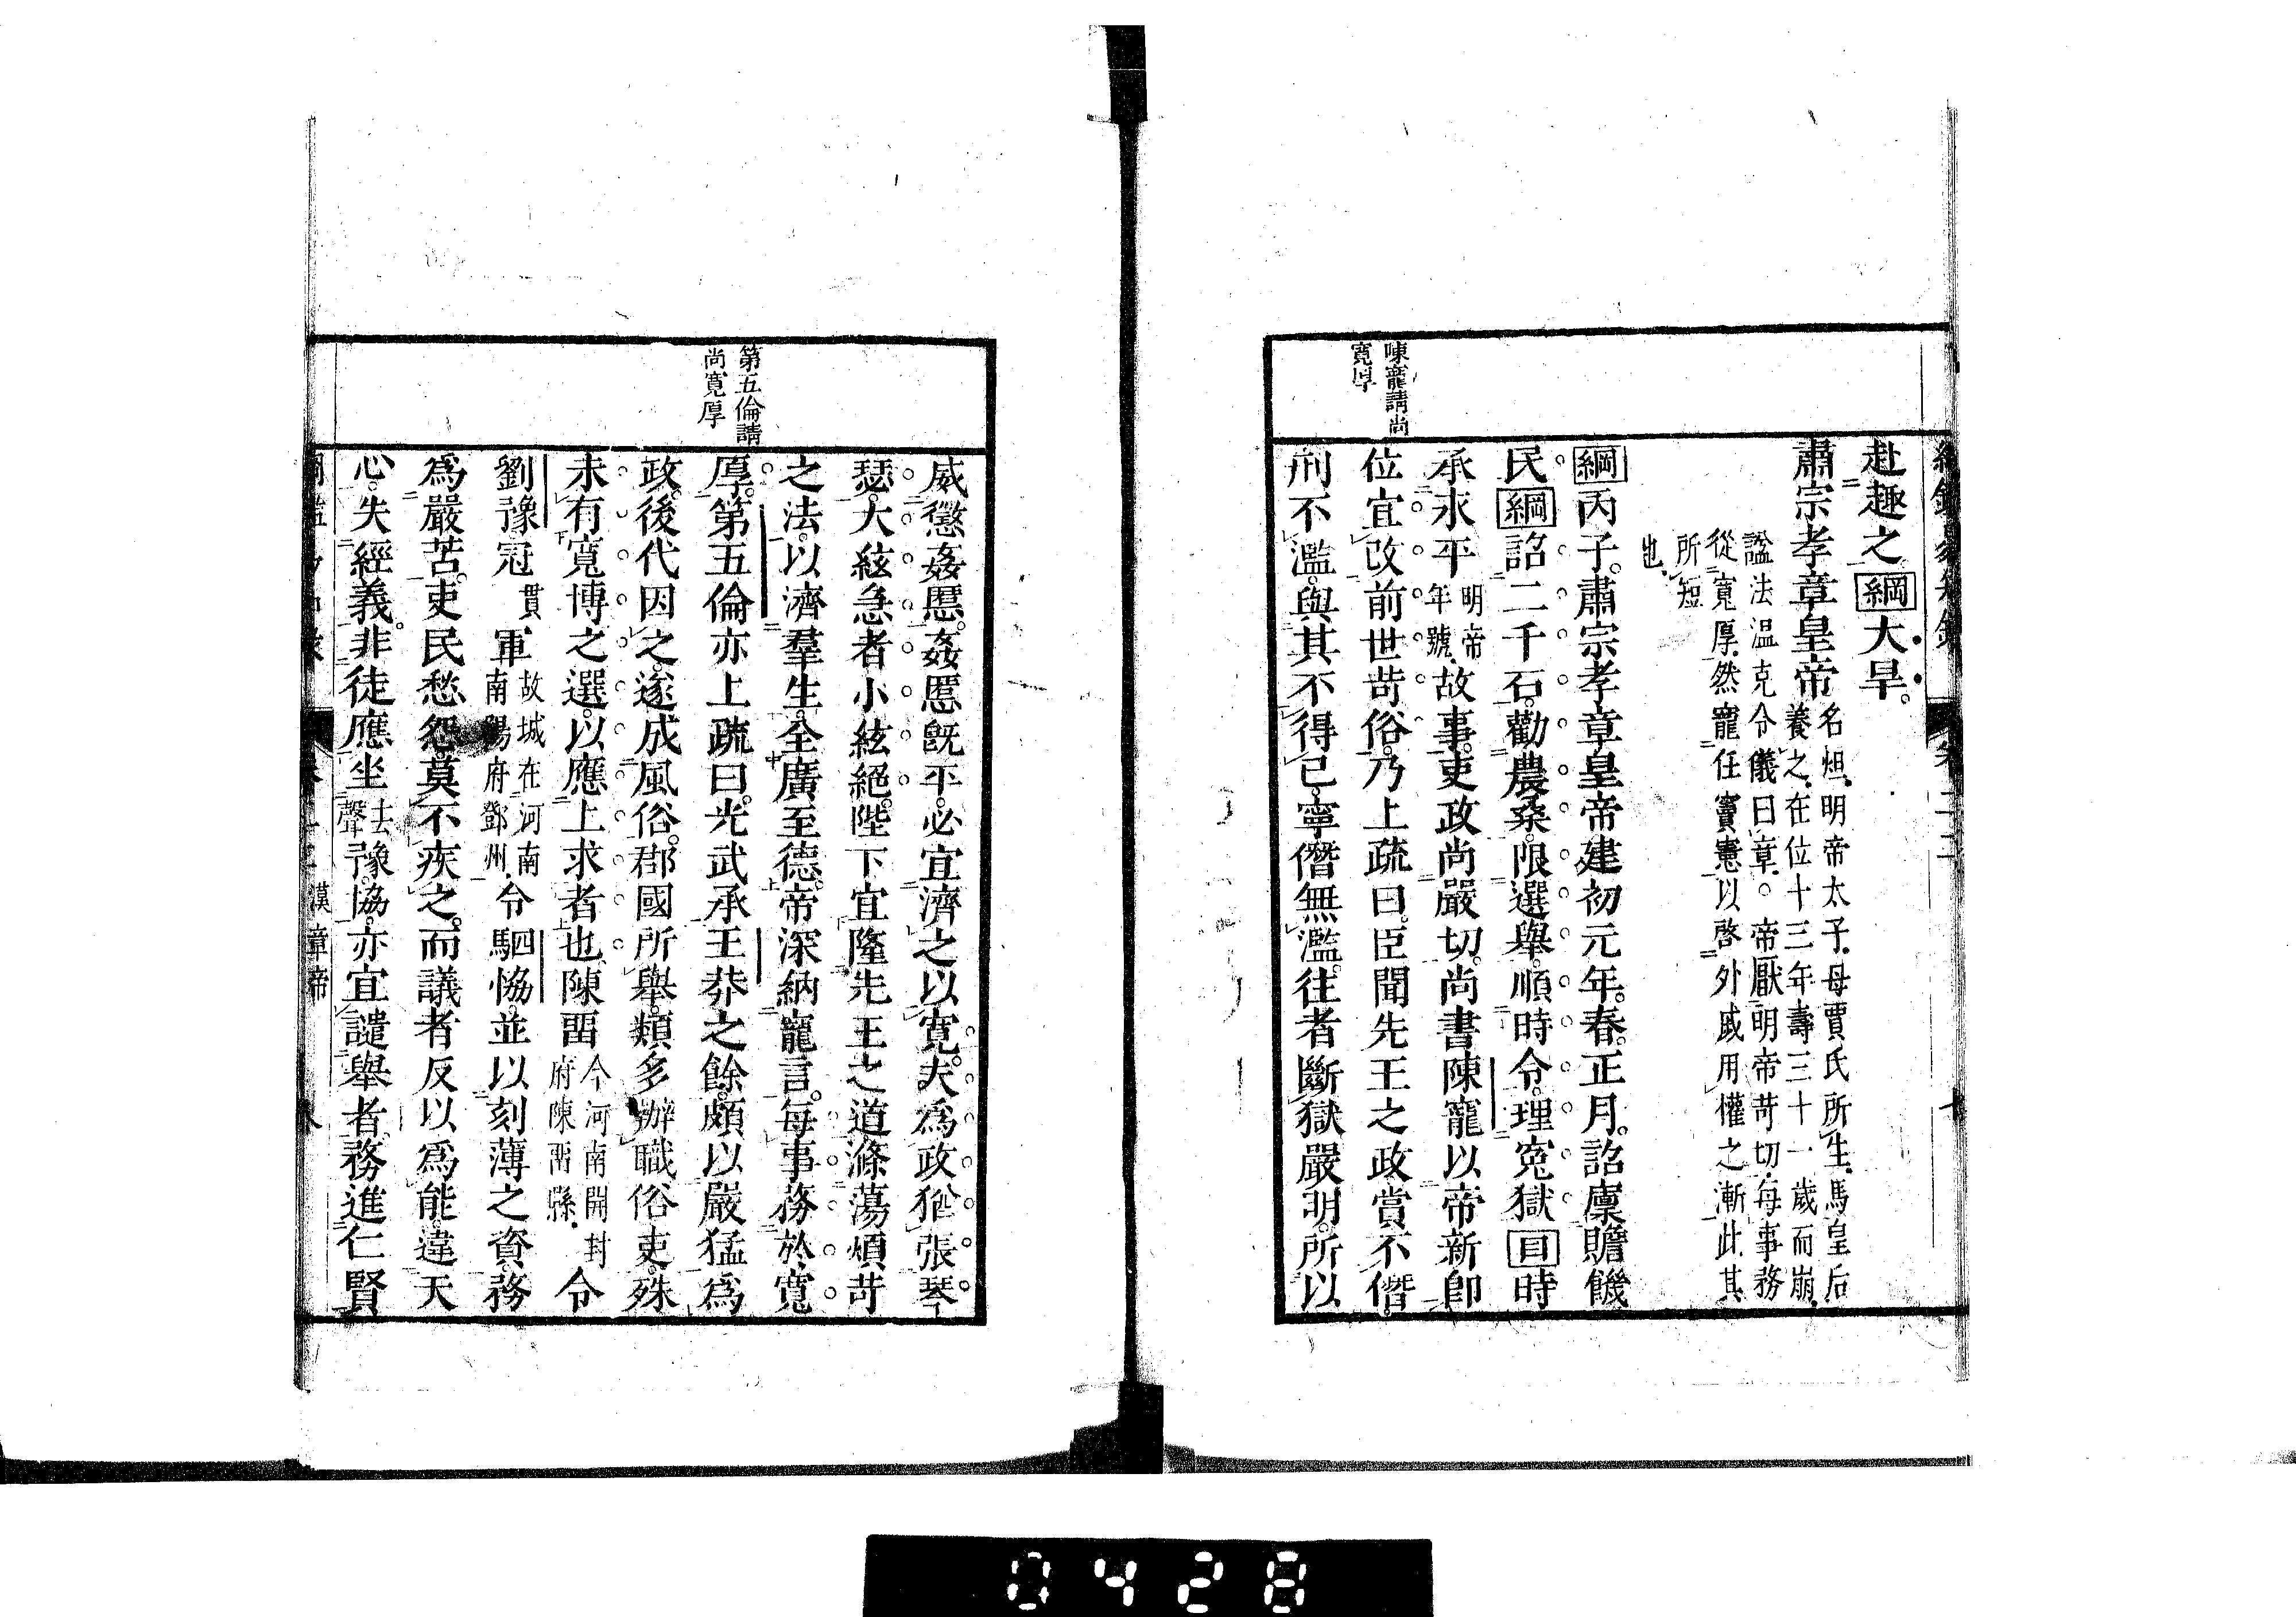 赴趣之綱大旱。
肅宗孝章皇帝
名炟。明帝太子。母賈氏所生。馬皇后
養之。在位十三年。壽三十一歲而崩。
諡法溫克令儀曰章。○帝厭明帝苛切。每事務
從寬厚。然寵任竇憲以啓外戚用權之漸。此其
所短
也。
綱丙子。肅宗孝章皇帝建初元年。春。正月。詔廩贍饑
民綱詔二千石。勸農桑。限選舉。順時令。理冤獄目時
承永平
明帝
年號。
故事。吏政尚嚴切。尚書陳寵以帝新卽
位宜改前世苛俗。乃上疏曰。臣聞先王之政賞不僭。
刑不濫。與其不得已。寧僭無濫。往者斷獄嚴明。所以
陳寵請尚
寬厚
威懲姦慝。姦慝旣平。必宜濟之以寬。夫爲政猶張琴
瑟。大絃急者小絃絕。陛下宜隆先王之道滌蕩煩苛
之法。以濟羣生。全廣至德。帝深納寵言。每事務於寬
厚。第五倫亦上疏曰。光武承王莽之餘。頗以嚴猛爲
政。後代因之。遂成風俗。郡國所舉。類多辦職俗吏。殊
未有寬博之選。以應上求者也。陳畱
今河南開封
府陳畱縣。
令
劉豫冠
貫
軍
故城在河南
南陽府鄧州。
令駟恊。並以刻薄之資。務
爲嚴苦。吏民愁怨。莫不疾之。而議者反以爲能。違天
心。失經義。非徒應坐
去
聲
豫。協。亦宜譴舉者。務進仁賢
第五倫請
尚寬厚
漢章帝
0428